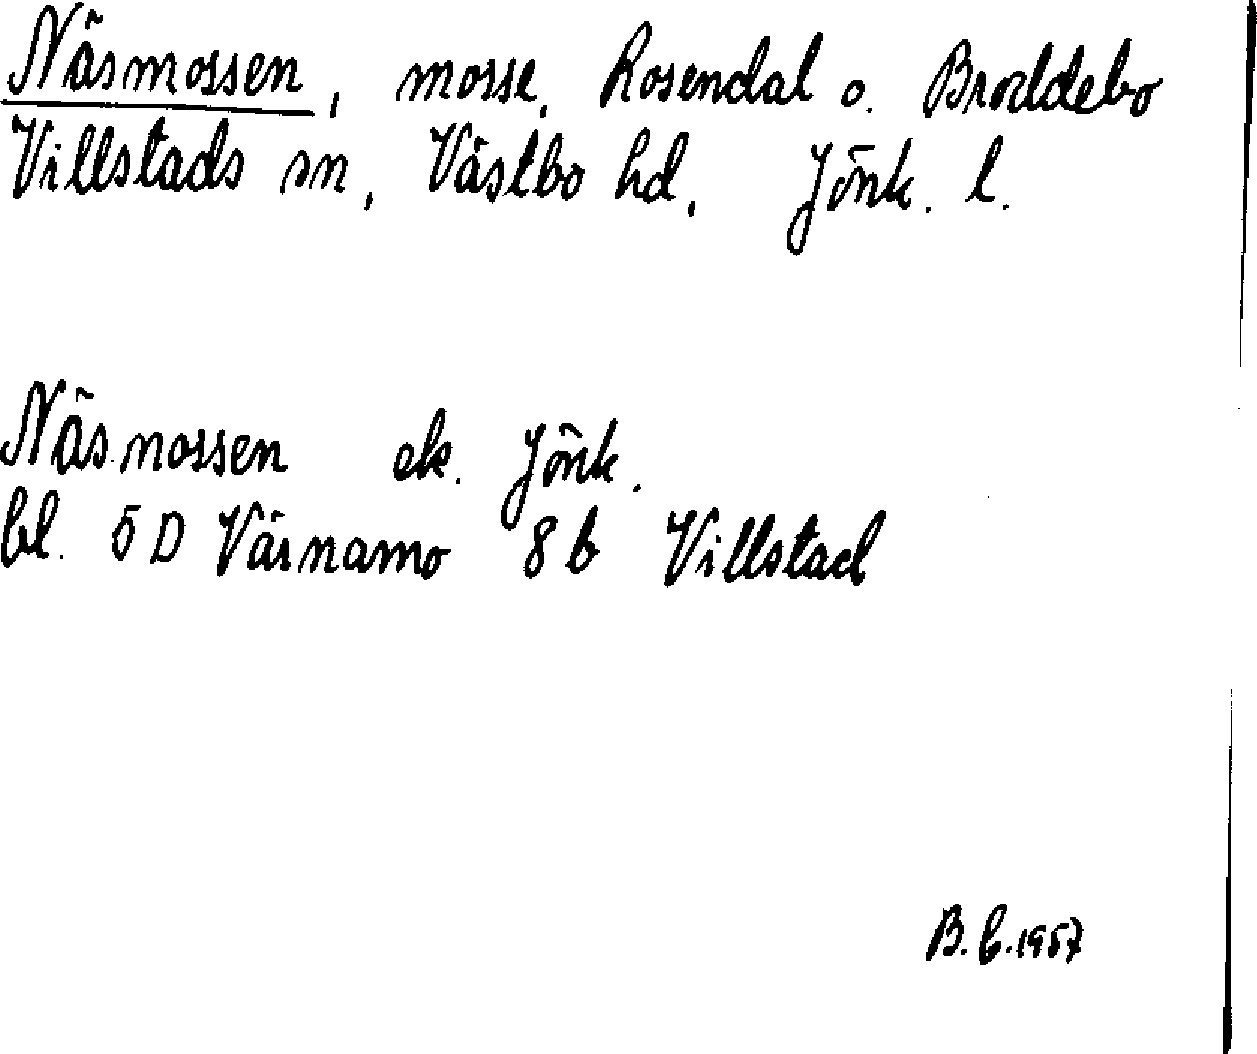 Näsmossen, mosse, Rosendal o. Broddebo
Villstads sn, Västbo hd, Jönk. l.
Näsmossen ek. Jönk.
bl. 5 D Värnamo 8 b Villstad
B. C. 1957